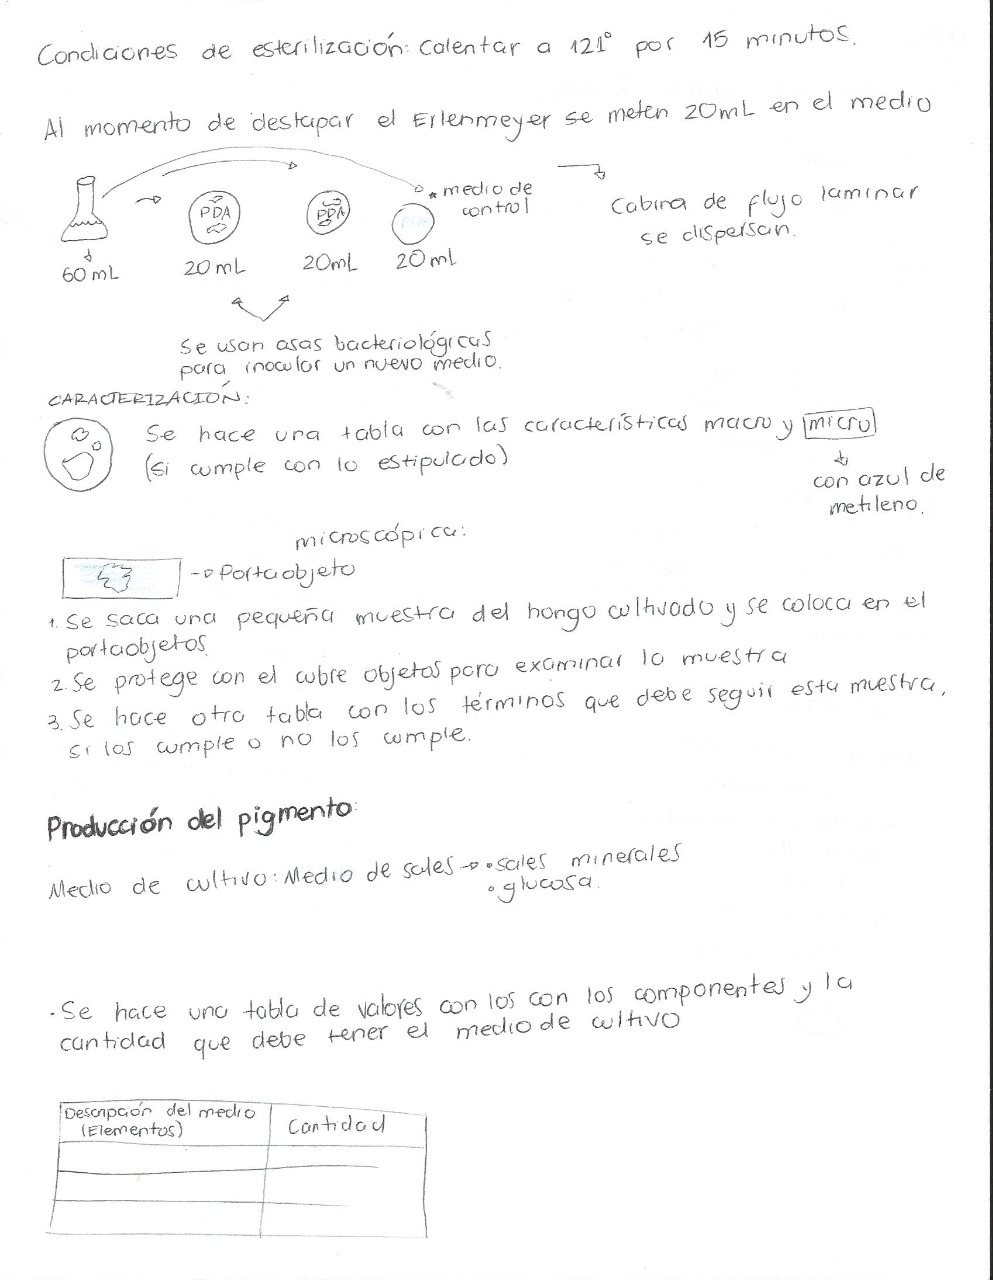 Condiciones de esterilización: Calentar a 121° por 15 minutos.
Al momento de destapar el Erlenmeyer se meten 20mL en el medio
* medio de
control
PDA
PDA
Cabina de flujo laminar
se dispersan.
60 mL
20 mL
20mL
20 mL
Se usan asas bacteriológicas
para inocular un nuevo medio.
CARACTERIZACIÓN:
Se hace una tabla con las características macro y micro
(si cumple con lo estipulado)
con azul de
metileno.
microscópica:
Portaobjeto
1. Se saca una pequeña muestra del hongo cultivado y se coloca en el
portaobjetos.
2. Se protege con el cubre objetos para examinar la muestra
3. Se hace otra tabla con los términos que debe seguir esta muestra,
si los cumple o no los cumple.
Producción del pigmento:
Medio de cultivo: Medio de sales → • sales minerales
• glucosa.
• Se hace una tabla de valores con los con los componentes y la
cantidad que debe tener el medio de cultivo
Descripción del medio
(Elementos)
Cantidad